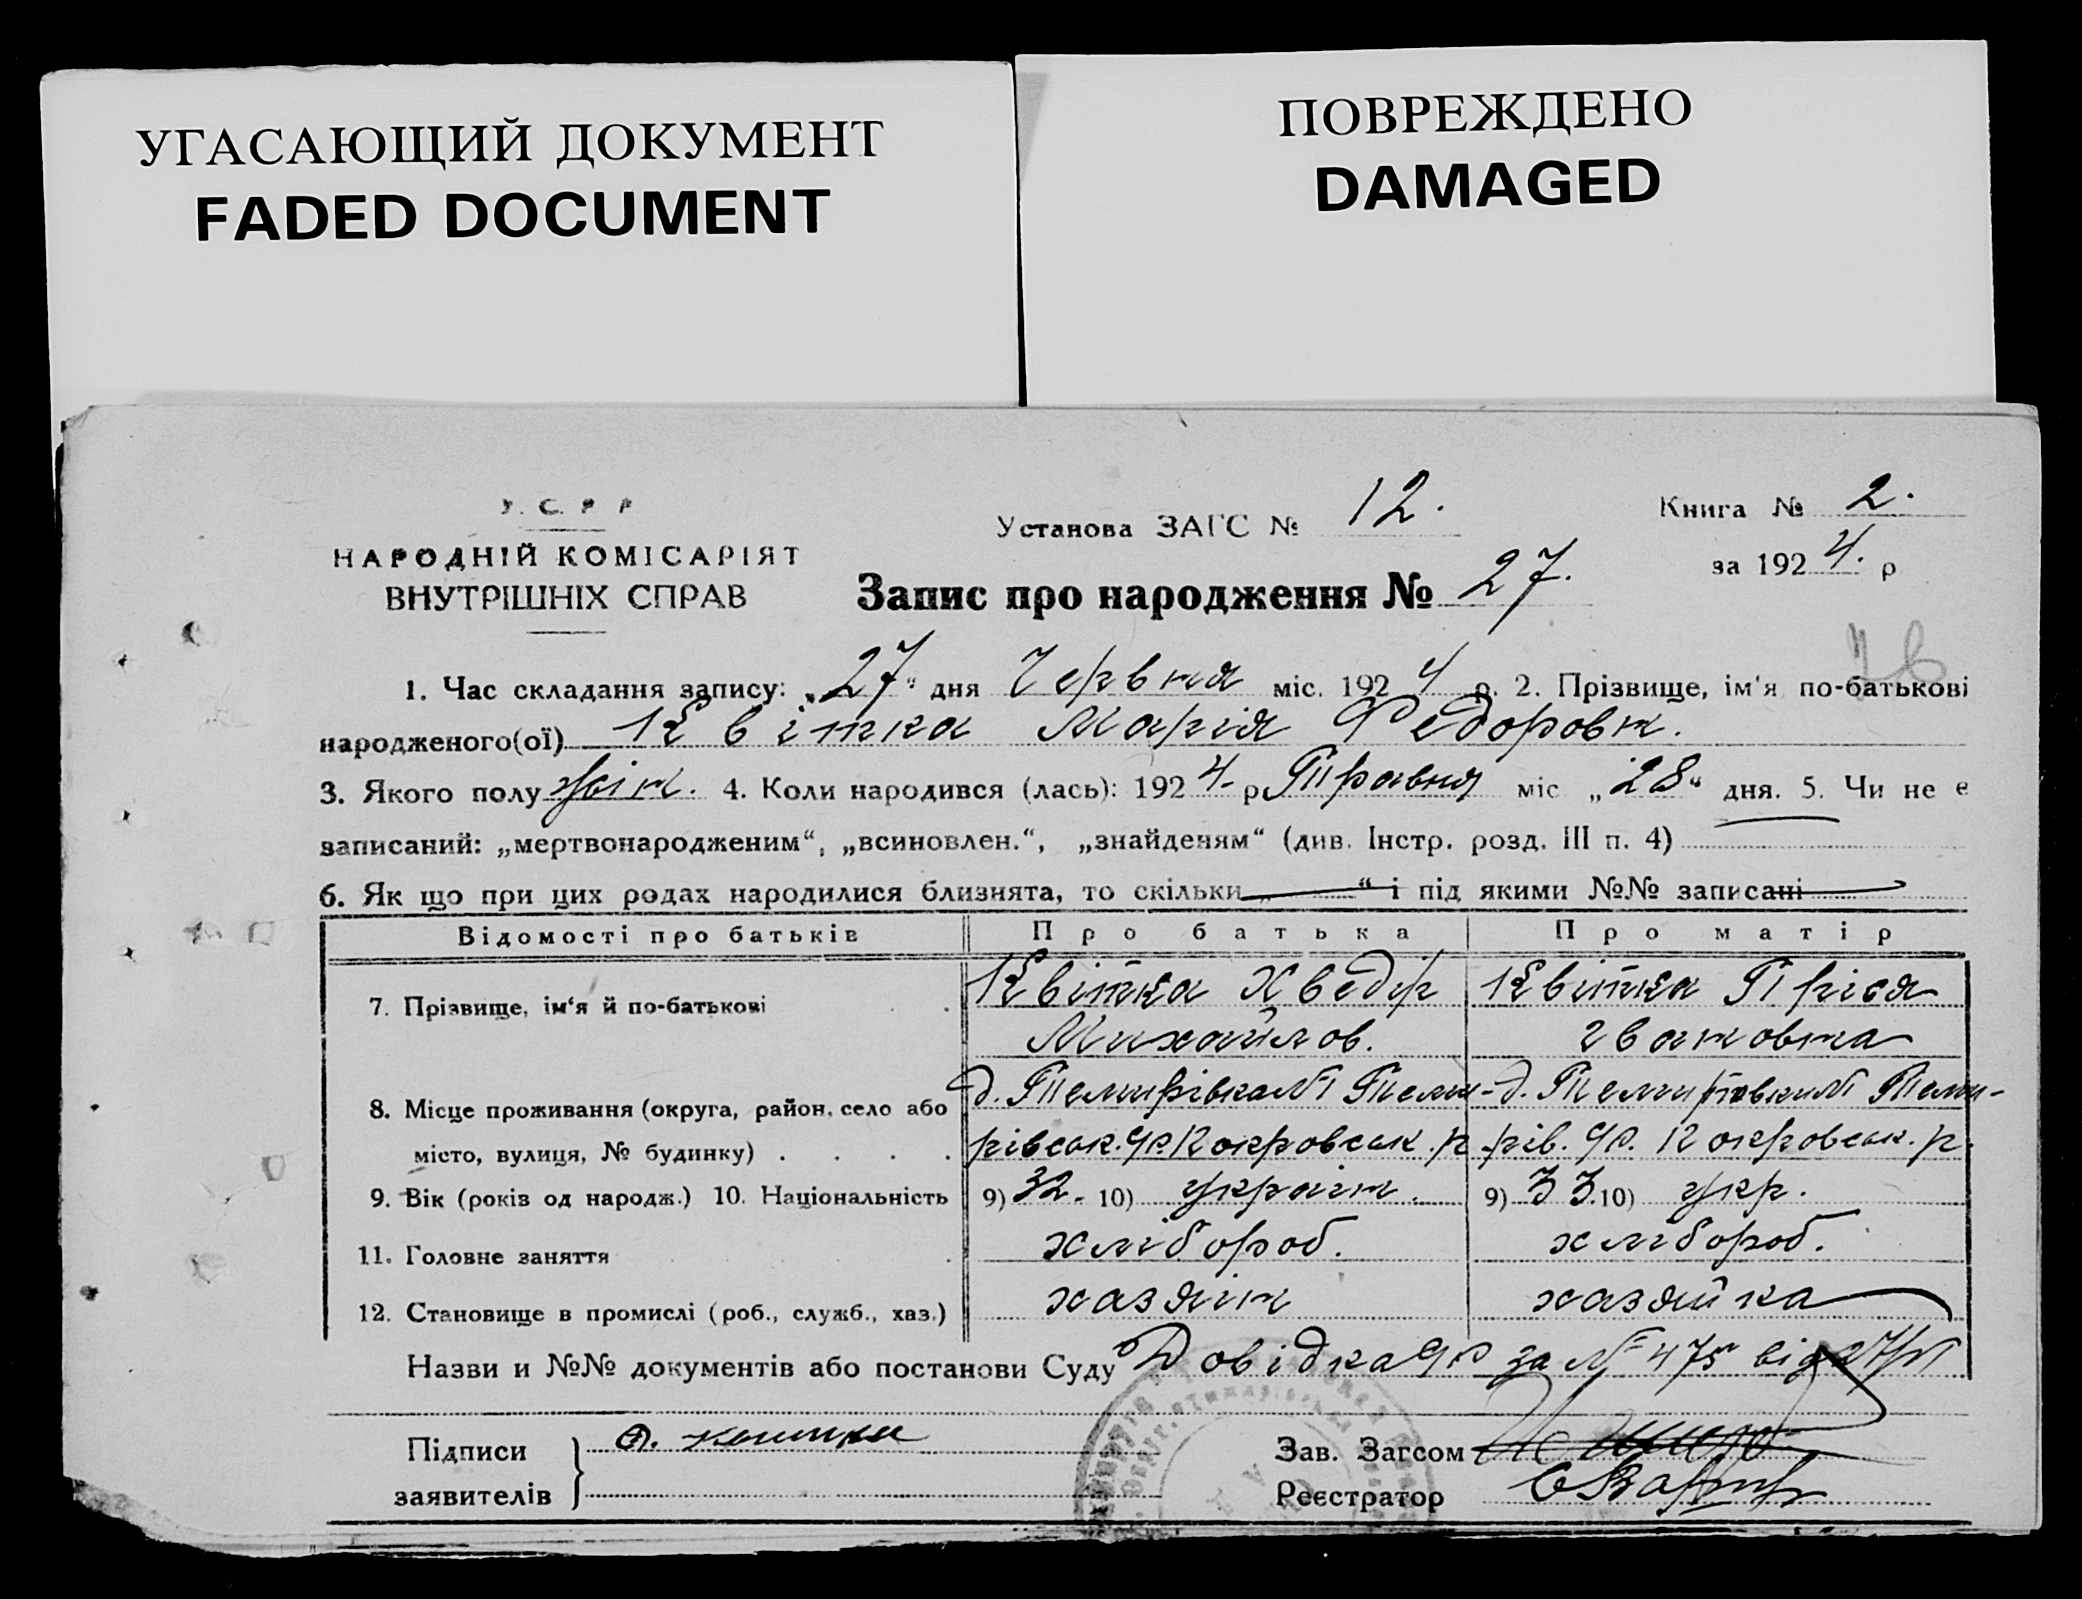 УГАСАЮЩИЙ ДОКУМЕНТ
FADED DOCUMENT
ПОВРЕЖДЕНО
DAMAGED
У. С. Р Р
НАРОДНІЙ КОМІСАРІЯТ
ВНУТРІШНІХ СПРАВ
Установа ЗАГС № 12.
Книга № 2.
за 1924. р
Запис про народження № 27.
1. Час складання запису: „27“ дня Червня міс. 1924 р. 2. Прізвище, ім‘я по-батькові
народженого(ої) Квітка Марія Федоровн.
3. Якого полу жін. 4. Коли народився (лась): 1924 р. Травня міс „28“ дня. 5. Чи не є
записаний: „мертвонародженим“, „всиновлен.“, „знайденям“ (див. Інстр. розд. III п. 4)
6. Як що при цих родах народилися близнята, то скільки „ “ і під якими №№ записані
Відомості про батьків Про батька Про матір
7. Прізвище, ім‘я й по-батькові Квітка Хведір Квітка Пріся
Михайлов. Івановна
8. Місце проживання (округа, район, село або д. Темирівка Теми- д. Темирівки Теми-
місто, вулиця, № будинку) рівськ. Покровськ. р рів. Покровськ. р.
9. Вік (років од народж.) 10. Національність 9) 32. 10) україн. 9) 33. 10) укр.
11. Головне заняття хлібороб. хлібороб.
12. Становище в промислі (роб., служб., хаз.) хазяїн хазяйка
Назви и №№ документів або постанови Суду Довідка за № 475 від 27/
Підписи
заявителів
Зав. Загсом
Реєстратор